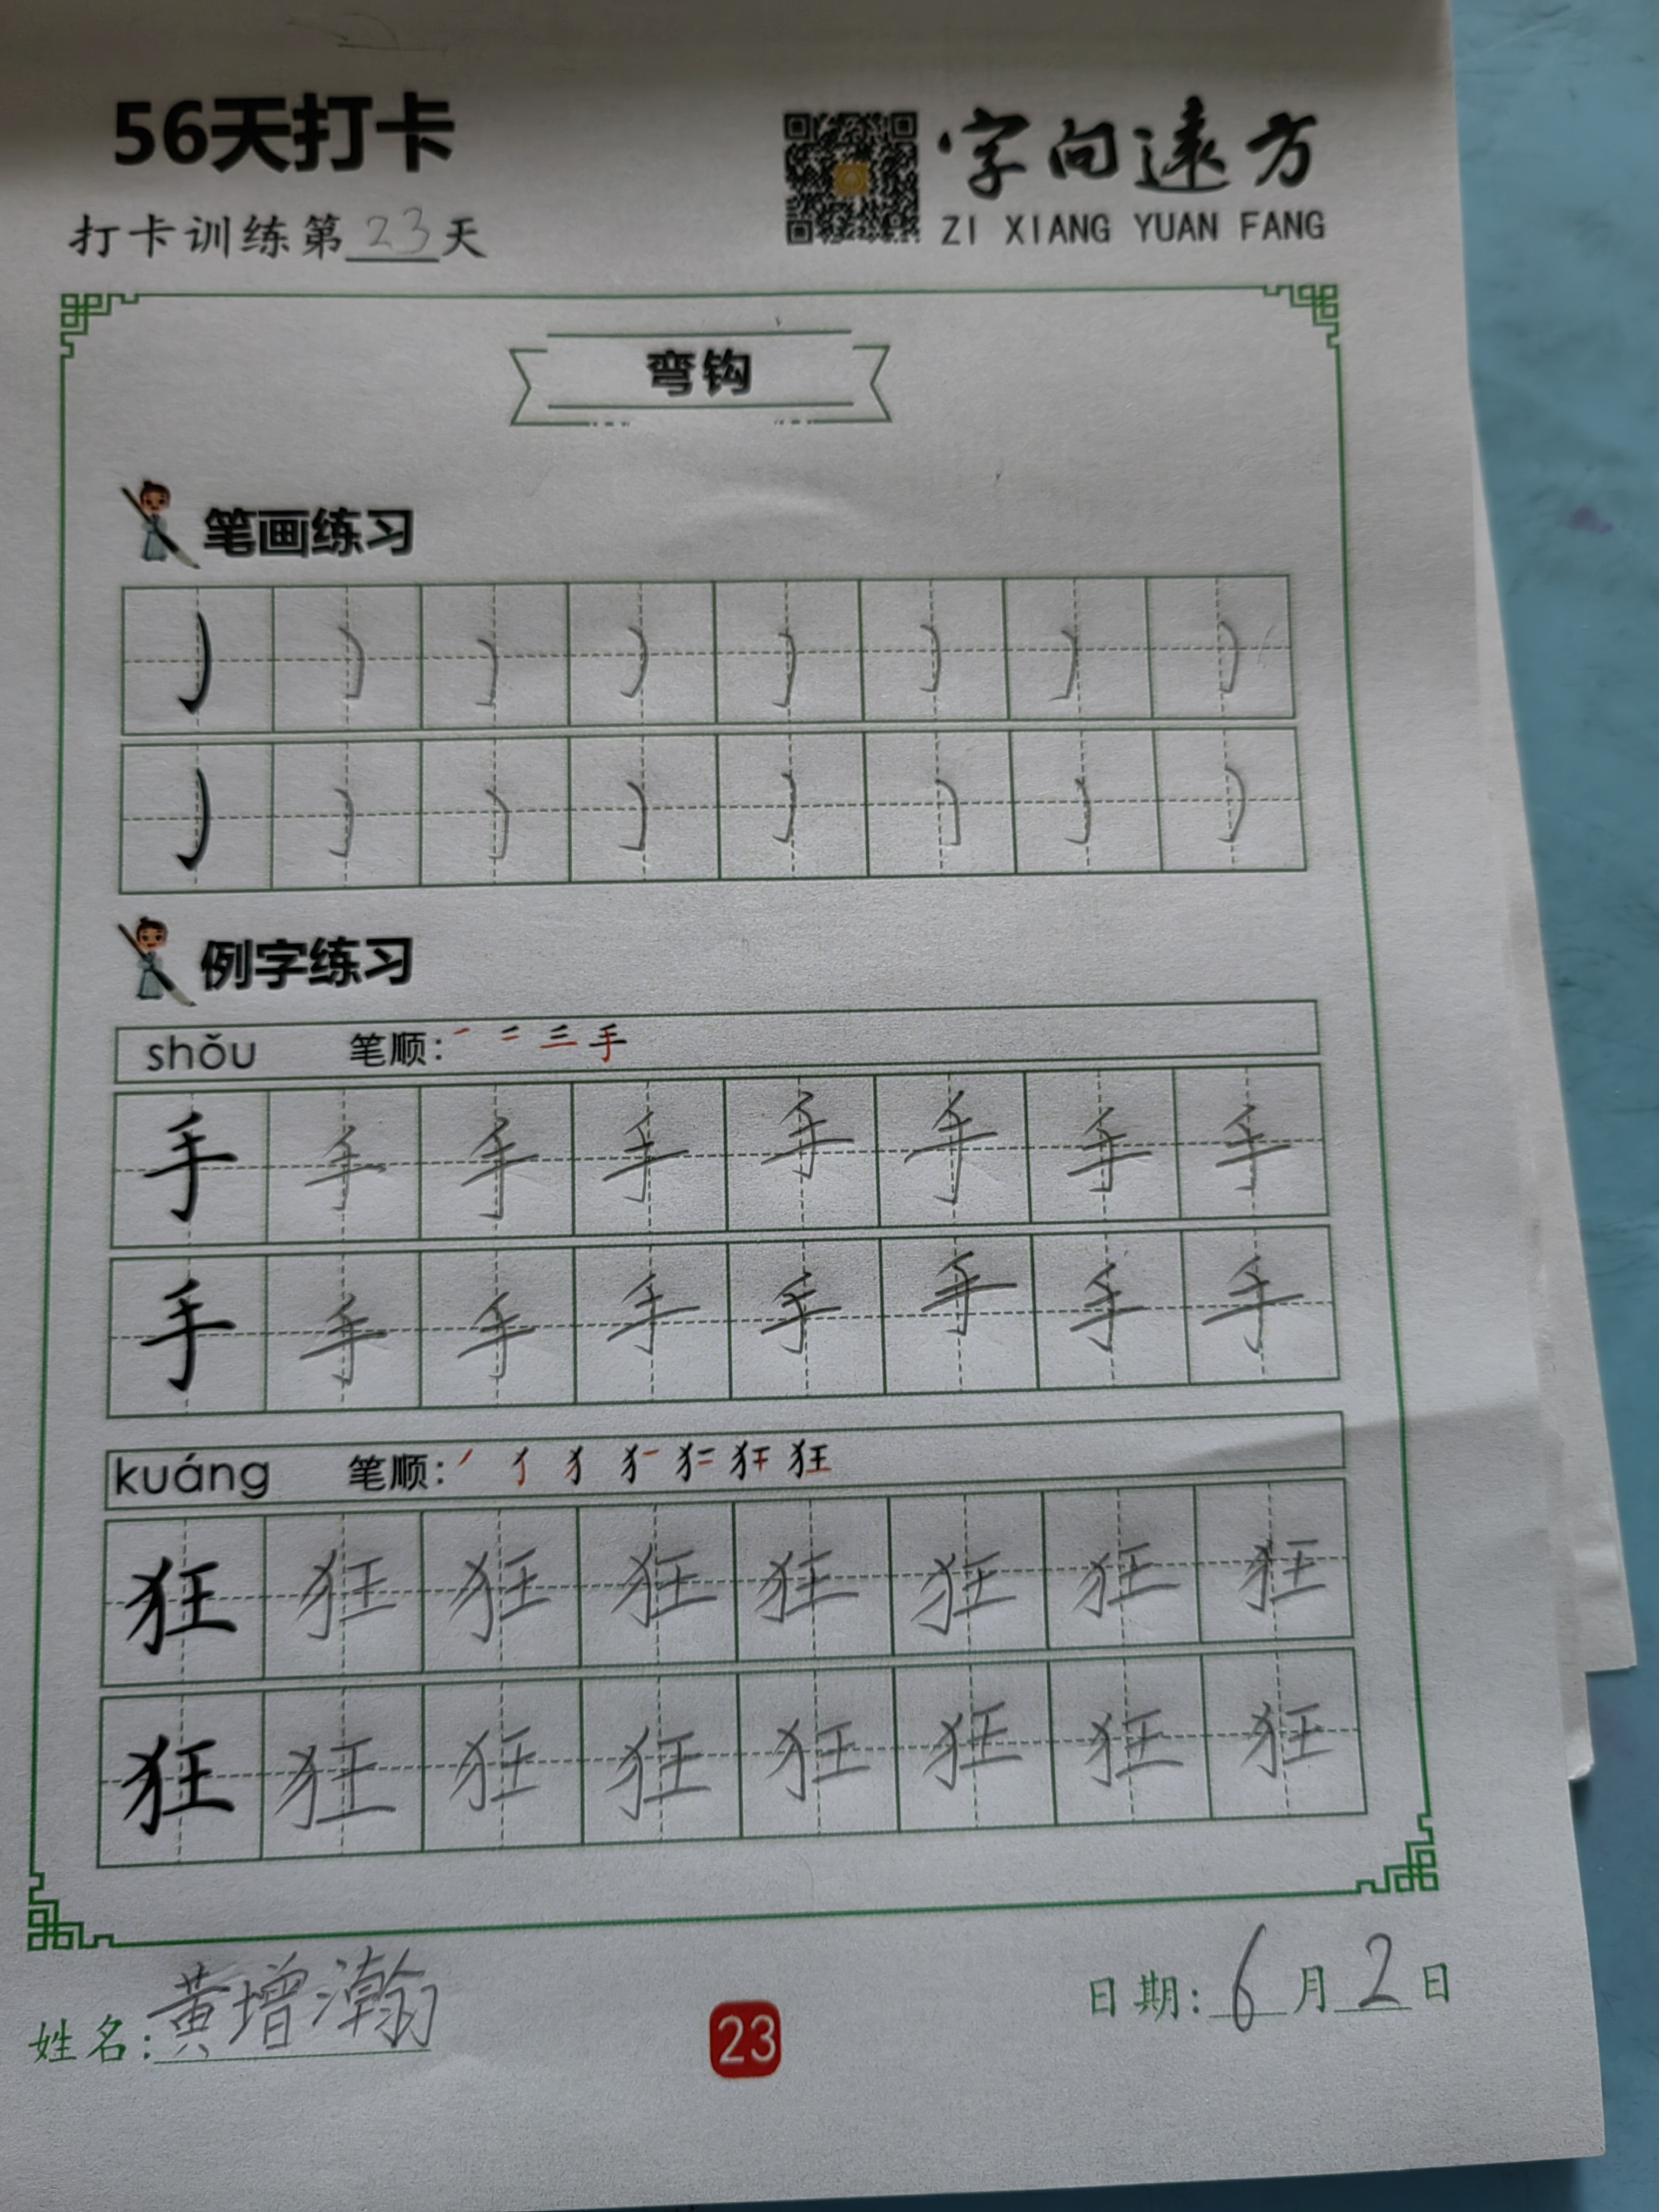 56天打卡
字向远方
ZI XIANG YUAN FANG
打卡训练第23天
弯钩
笔画练习
例字练习
shǒu 笔顺: 一 二 三 手
手 手 手 手 手 手 手 手
手 手 手 手 手 手 手 手
kuáng 笔顺: 狂
狂 狂 狂 狂 狂 狂 狂 狂
狂 狂 狂 狂 狂 狂 狂 狂
姓名:黄增瀚
23
日期:6月2日